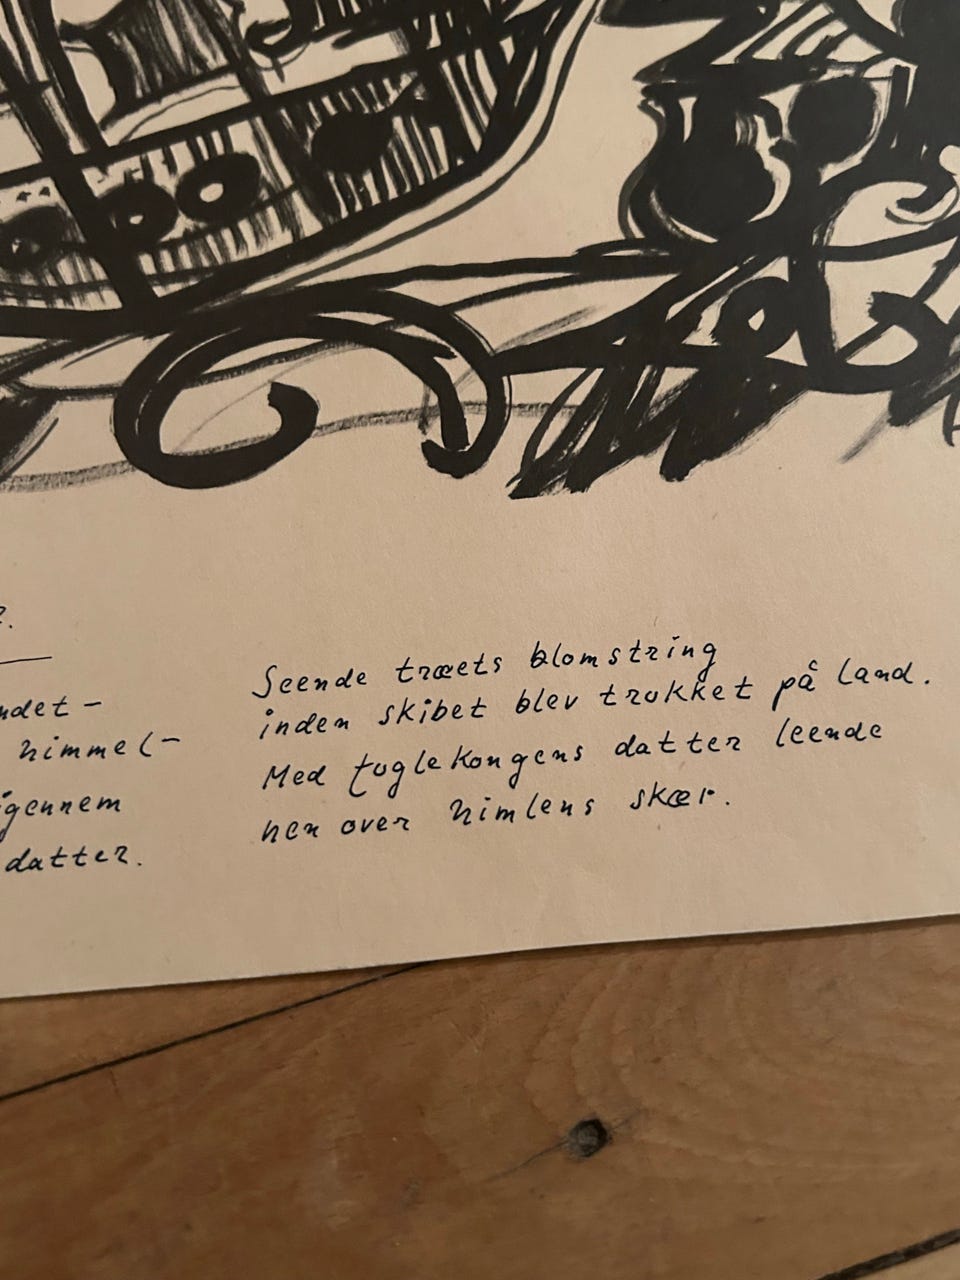 ndet -
himmel-
igennem
datter.
Seende træets blomstring
inden skibet blev trukket på land.
Med fuglekongens datter leende
hen over himlens skær.